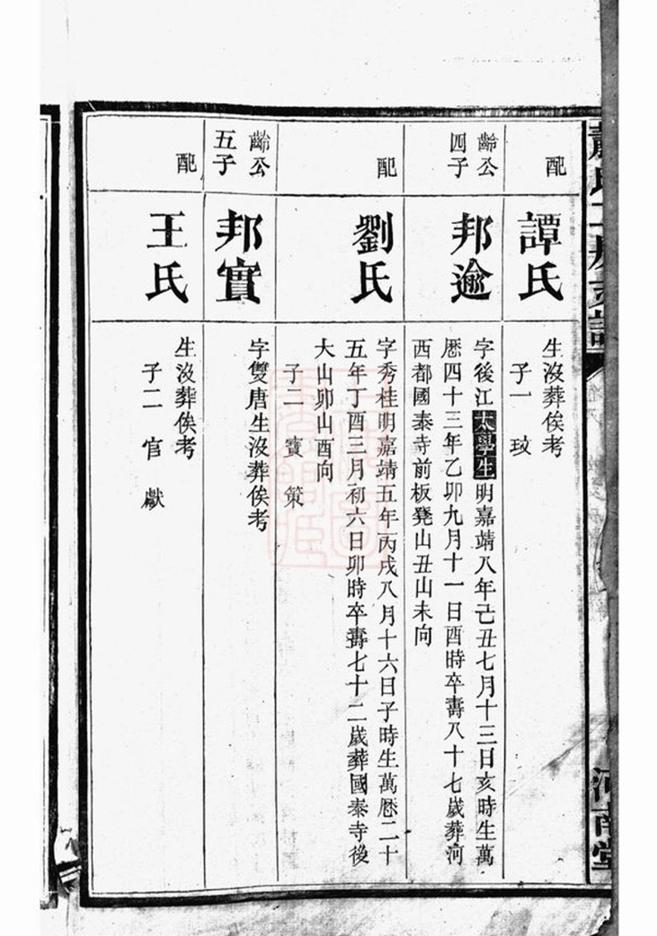 配
譚氏
生沒葬俟考
子一 玟
齡公
四子
邦逾
字後江太學生明嘉靖八年己丑七月十三日亥時生萬
厯四十三年乙卯九月十一日酉時卒壽八十七歲葬河
西都國泰寺前板凳山丑山未向
配
劉氏
字秀桂明嘉靖五年丙戌八月十六日子時生萬厯二十
五年丁酉三月初六日卯時卒壽七十二歲葬國泰寺後
大山卯山酉向
子二 寳 策
齡公
五子
邦實
字雙唐生沒葬俟考
配
王氏
生沒葬俟考
子二 官 獻